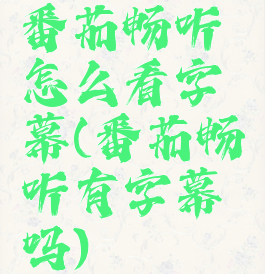 番茄畅听
怎么看字
幕(番茄畅
听有字幕
吗)